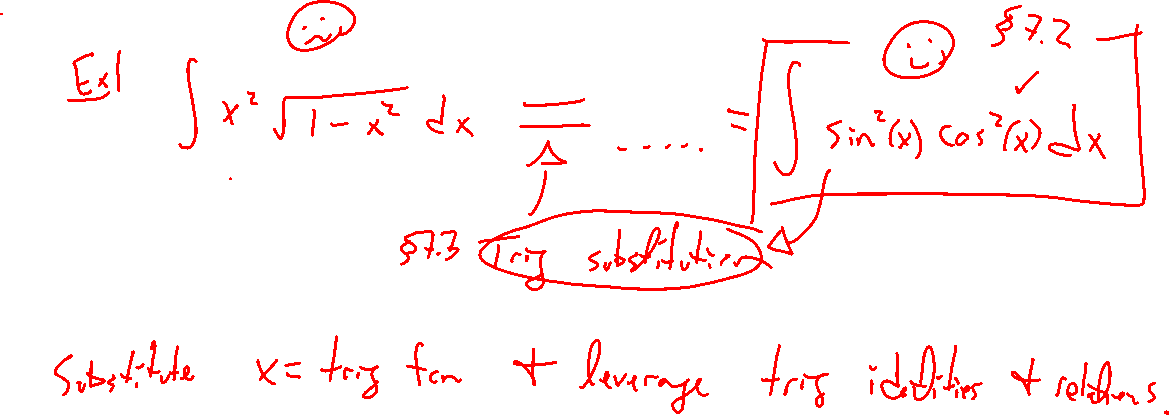 §7.2
Ex1 ∫ x² √(1-x²) dx = ..... = ∫ sin²(x) cos²(x) dx ✓
§7.3 Trig substitution
Substitute x = trig fcn + leverage trig identities + relations.